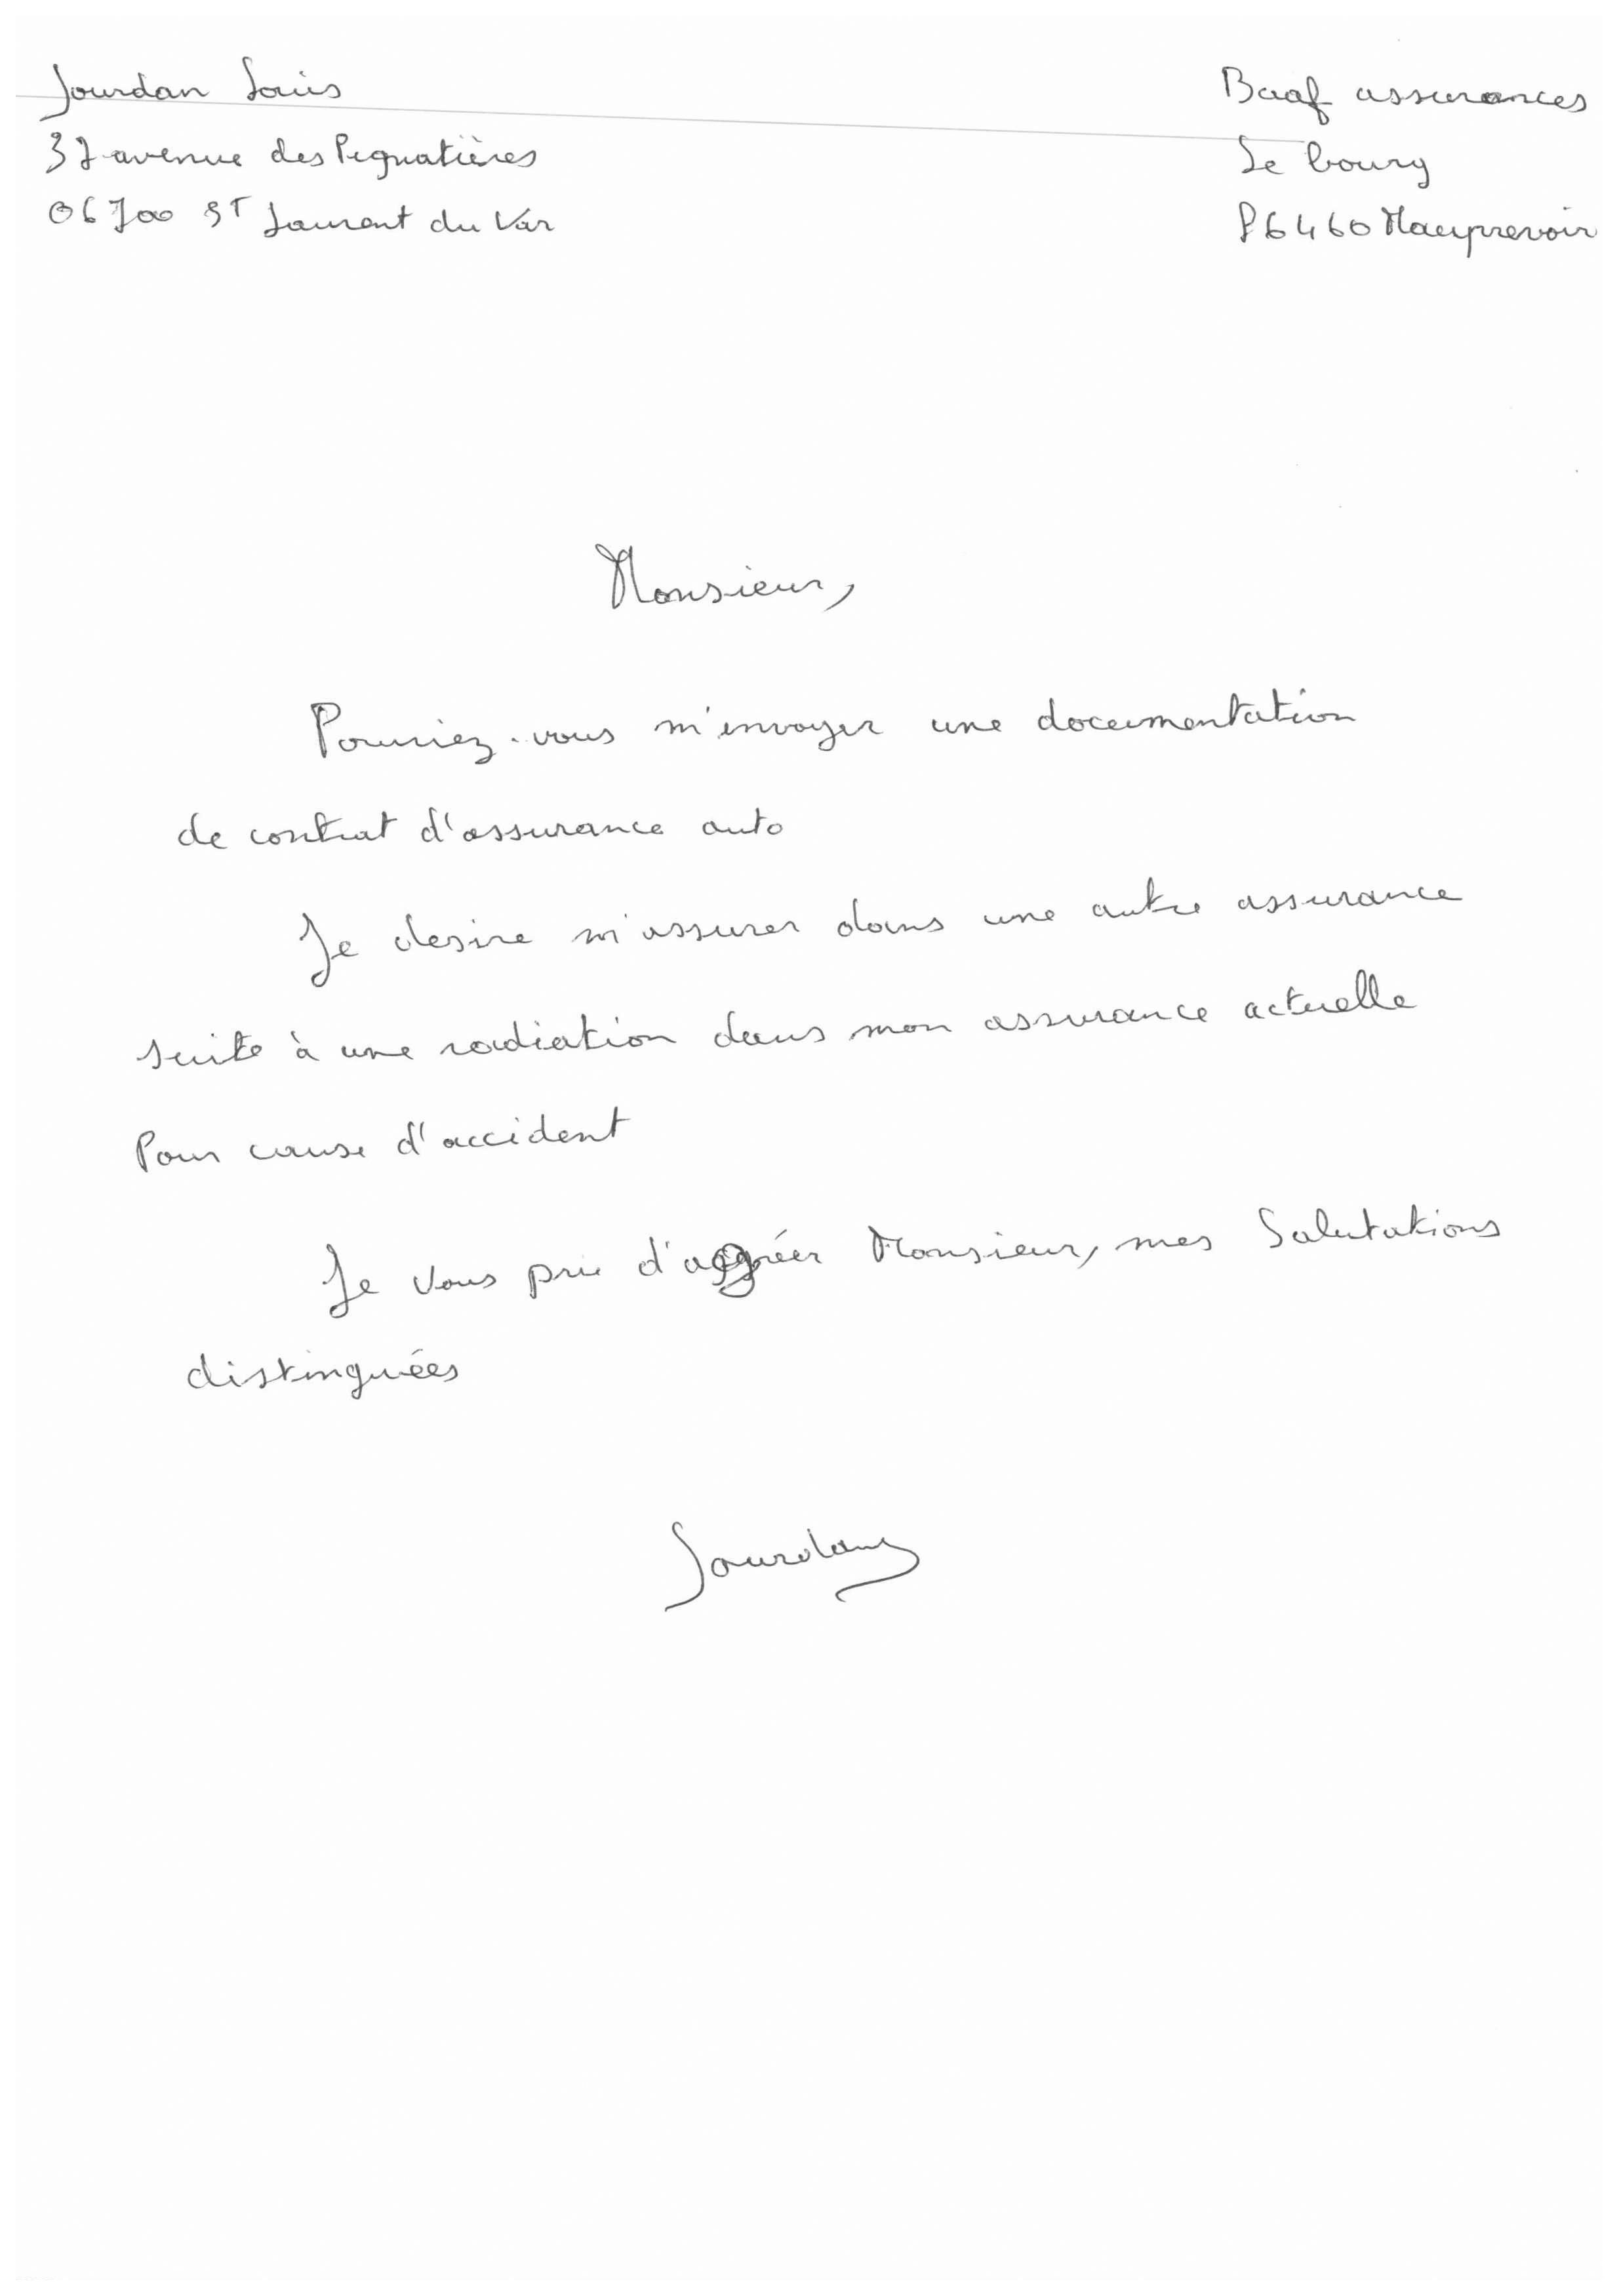 Jourdan Louis
37 avenue des Pignatières
06700 ST Laurent du Var
Baaf assurances
Le bourg
86460 Mauprevoir
Monsieur,
Pourriez-vous m'envoyer une documentation
de contrat d'assurance auto
Je desire m'assurer dans une autre assurance
suite à une radiation dans mon assurance actuelle
Pour cause d'accident
Je vous prie d'agréer Monsieur, mes Salutations
distinguées
Jourdan